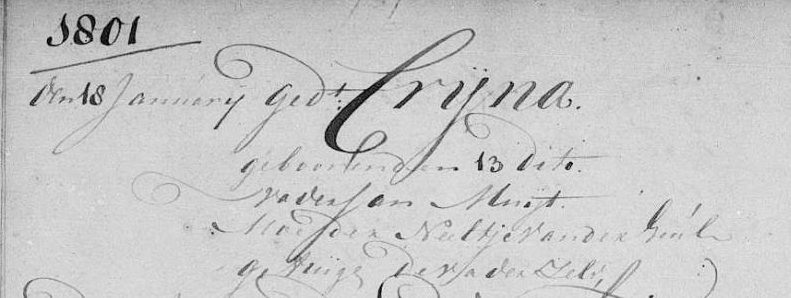 1801
den 18 Januarÿ gedt. Crÿna.
gebooren den 13 dito.
vader Jan Muijt.
Moeder Neeltje van der
getuijge de vader Zelv,